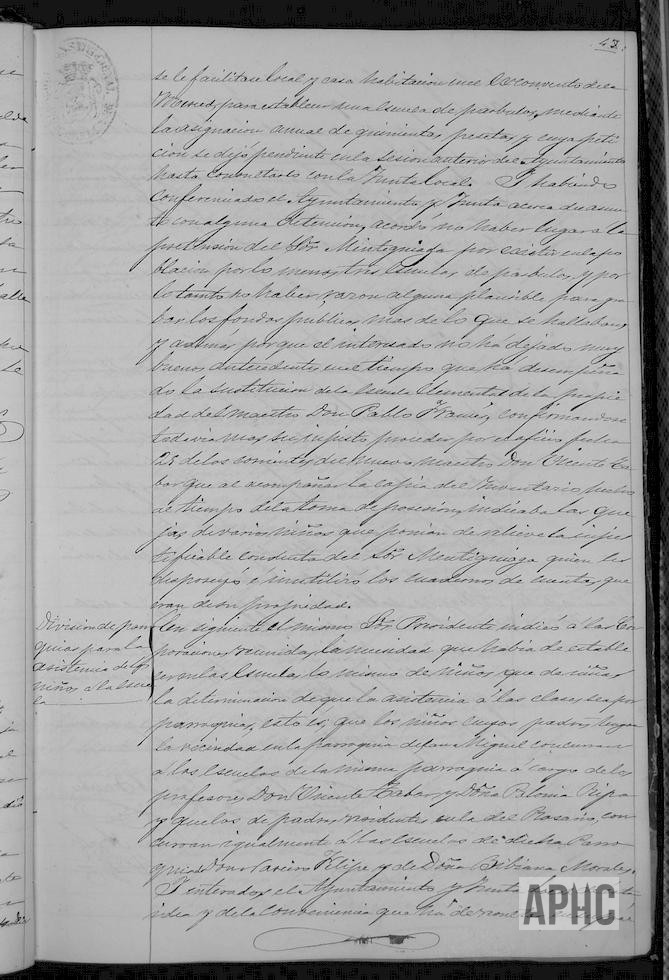 43.
se le facilitase local y casa habitacion en el Exconvento de la
Merced, para establecer una escuela de párbulos, mediante
la asignacion anual de quinientas pesetas, y cuya peti
cion se dejó pendiente en la sesion anterior del Ayuntamiento
hasta consultarlo con la Junta local. Y habiendo
conferenciado el Ayuntamiento y Junta acerca de asun
to con alguna detencion, acordó no haber lugar a la
pretension del Sor. por existir en la po
blacion por lo menos, tres Escuelas de párbulos, y por
lo tanto no haber razon alguna plausible para gra
bar los fondos públicos mas de lo que se hallaban,
y ademas porque el interesado no ha dejado muy
buenos antecedentes en el tiempo que ha desempeña
do la sustitucion de la Escuela Elemental de la propie
dad del Maestro Don Pablo confirmandose
todavia mas su injusto proceder por el oficio fecha
25 de los corrientes, del nuevo Maestro Don Vicente Ta
bar que al acompañar la copia del Inventario
de tiempo de la toma de posesion, indicaba las que
jas de varios niños que ponian de relieve la injus
tificable conducta del Sor. quien les
desposeyó é inutilizó los cuadernos de cuentas, que
eran de su propiedad.
Division de parro
quias para la
asistencia de los
niños a la Escue
la
Con siguiente el mismo Sor. Presidente indicó á las Cor
poraciones reunidas, la necesidad que habia de estable
cer en las Escuelas, lo mismo de niños, que de niñas
la determinacion de que la asistencia á las clases, sea por
parroquias, esto es, que los niños cuyos padres tengan
la vecindad en la parroquia de San Miguel concurran
á las Escuelas de la misma parroquia á cargo de los
profesores, Don Vicente Tabar, y Doña Polonia Ripa
y que los de padres residentes en la del Rosario, con
curran igualmente á las Escuelas de dicha Parro
quia de Don Felipe y de Doña Bibiana Morales.
Y enterados el Ayuntamiento y Junta
y de la conveniencia que ha de
APHC